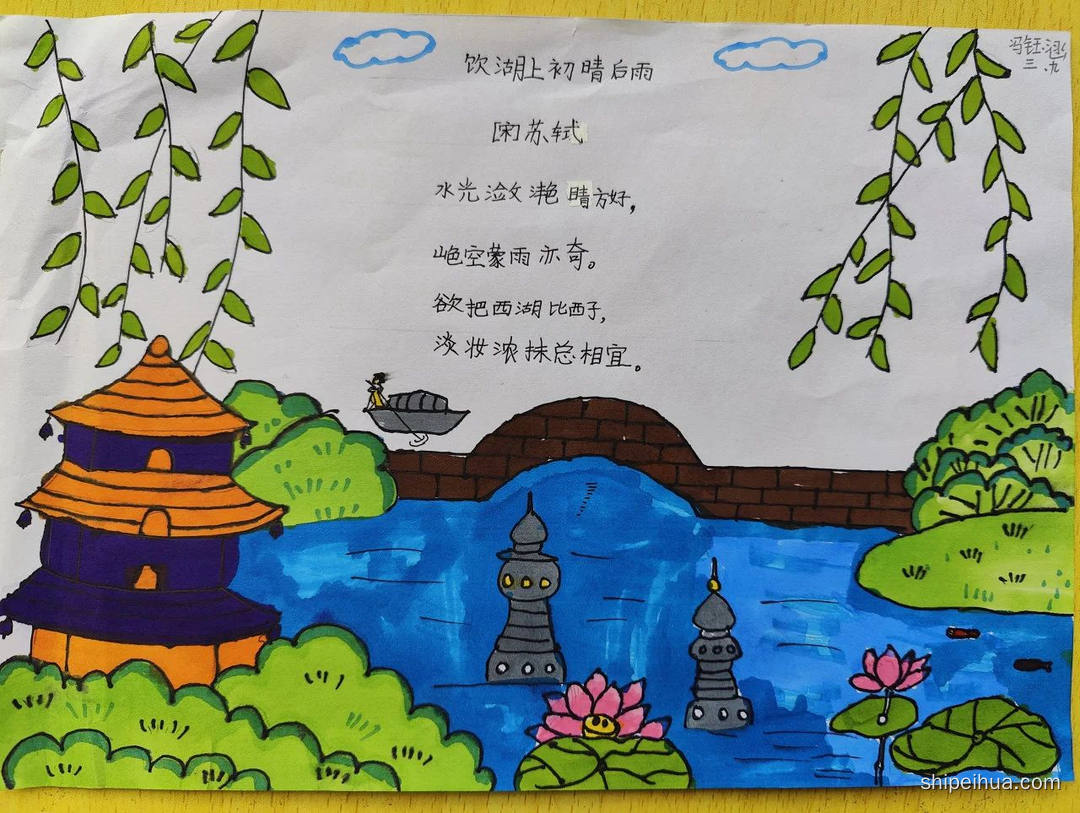 饮湖上初晴后雨
冯钰涵
三.九
[宋]苏轼
水光潋滟晴方好,
山色空蒙雨亦奇。
欲把西湖比西子,
淡妆浓抹总相宜。
shipeihua.com